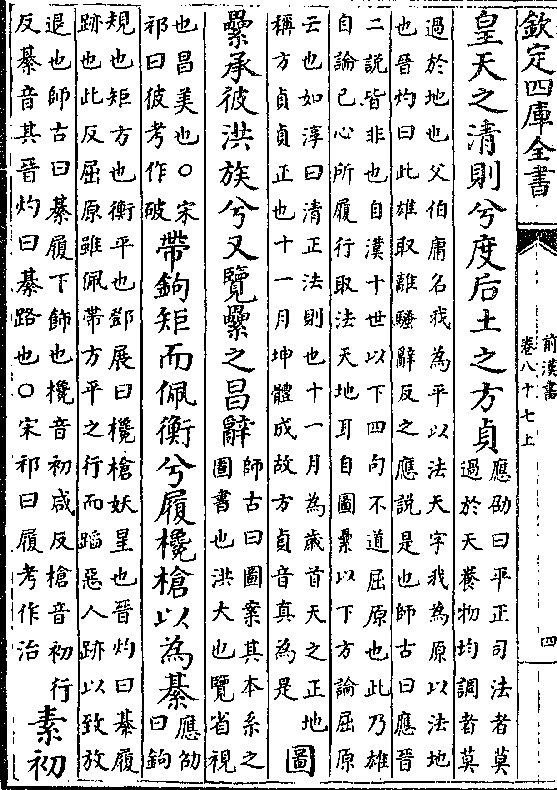 欽定四庫全書
前漢書
卷八十七上
四
皇天之清則兮度后土之方貞
應劭曰平正司法者莫
過於天養物均調者莫
過於地也父伯庸名我為平以法天字我為原以法地
也晉灼曰此雄取離騷辭反之應説是也師古曰應晉
二説皆非也自漢十世以下四句不道屈原也此乃雄
自論己心所履行取法天地耳自圖纍以下方論屈原
云也如淳曰清正法則也十一月為歲首天之正地
稱方貞貞正也十一月坤體成故方貞音真為是
圖
纍承彼洪族兮又覽纍之昌辭
師古曰圖案其本系之
圖書也洪大也覽省視
也昌美也○宋
祁曰彼考作破
帶鉤矩而佩衡兮履欃槍以為綦
應劭
曰鉤
規也矩方也衡平也鄧展曰欃槍妖星也晉灼曰綦履
跡也此反屈原雖佩帶方平之行而蹈惡人跡以致放
退也師古曰綦履下飾也欃音初咸反槍音初行
反綦音其晉灼曰綦路也○宋祁曰履考作治
素初